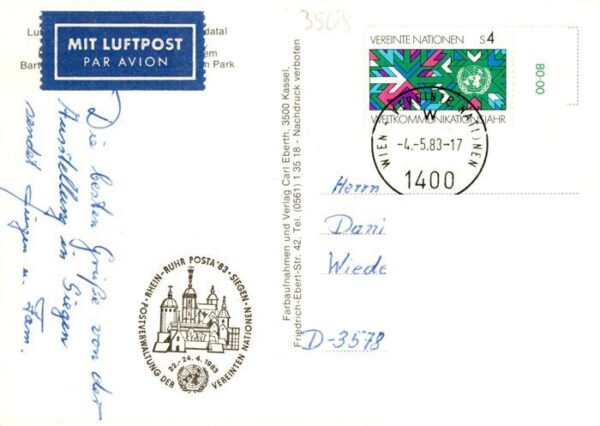 Lu
datal
em
Bart
m Park
MIT LUFTPOST
PAR AVION
Die besten Grüße von der
Ausstellung in Siegen
sendet Jürgen u. Fam.
RHEIN-RUHR POSTA '83 · SIEGEN ·
POSTVERWALTUNG DER VEREINTEN NATIONEN
22.-24. 4. 1983
Farbaufnahmen und Verlag Carl Eberth, 3500 Kassel,
Friedrich-Ebert-Str. 42. Tel. (0561) 1 35 18 - Nachdruck verboten
3503
VEREINTE NATIONEN S4
WELTKOMMUNIKATIONSJAHR
80 00
WIEN, VEREINTE NATIONEN
W
-4.-5.83-17
1400
Herrn
Dani
Wiede
D-3578